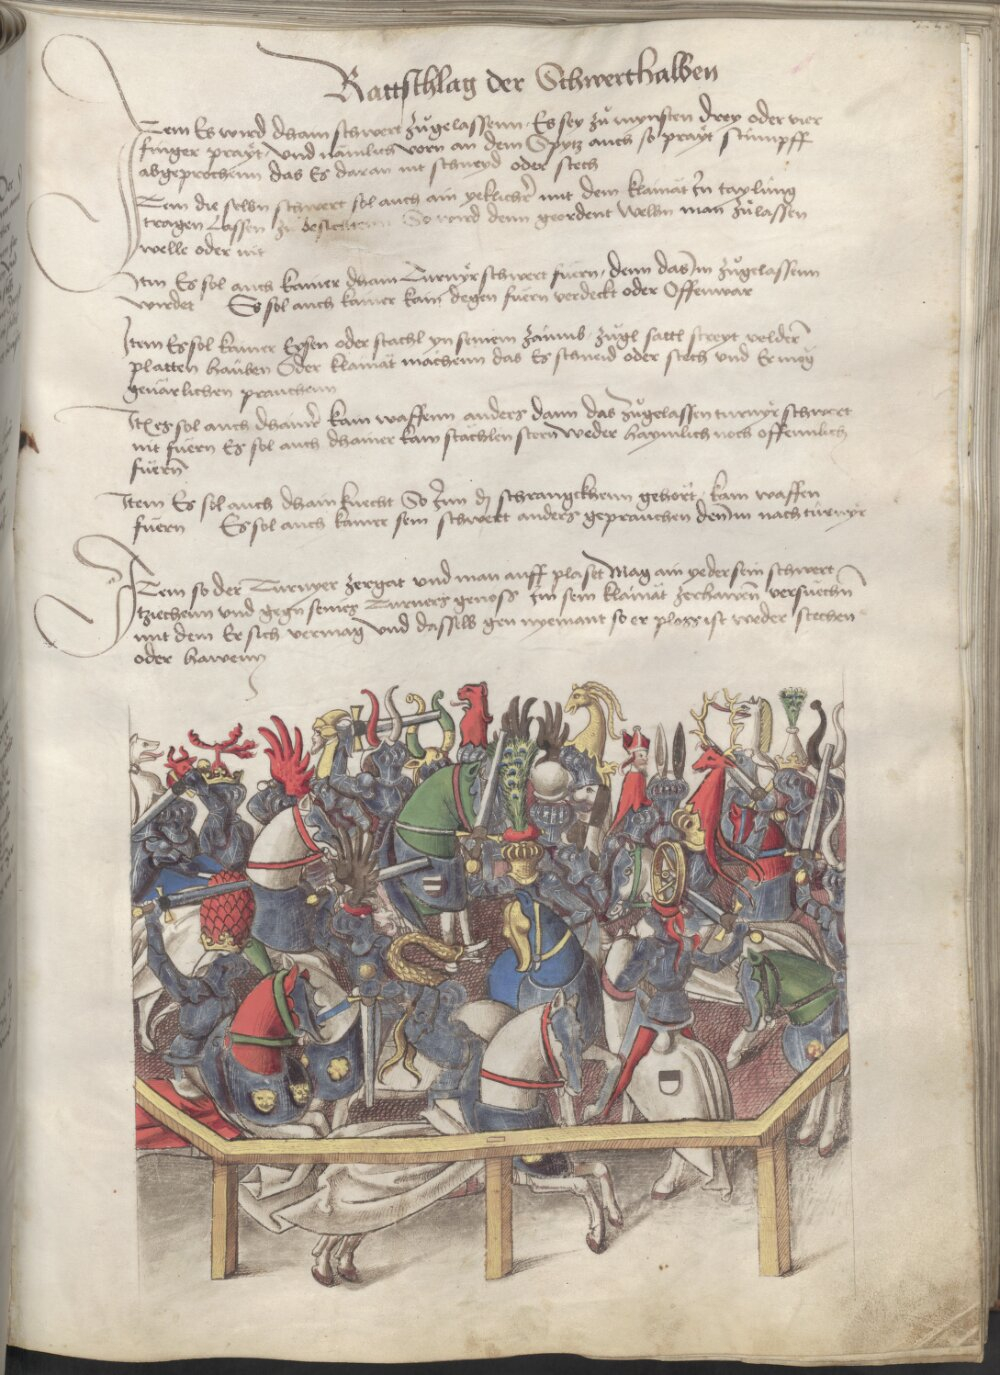 Rattschlag der Schwerthalben
Item Es wird dhain schwert zůgelassenn Es sey zů mynsten drey oder vier
finger prayt, vnd nämlich vorn an dem Spytz auch so prayt stümpff
abgeprochenn das Es daran nit schneyd oder stech
Item die selbn schwert sol auch ain yeklicher mit dem klainät Jn taylung
tragen Lassen zu besichtenn So wird denn geordent Welhn man zůlassen
welle oder nit
Itm Es sol auch kainer dhain Turnyr schwert füern, denn das Im zůgelassenn
wirdet Es sol auch kainer kain degen füern verdeckt oder Offenwar
Item Es sol kainer Eysen oder stachl yn seinem zäumb, zügl sattl streyt
platten hauben Oder klainät machenn das Es schneid oder stech vnd Er mög
geuärlichen prauchenn
Itm es sol auch dhainer kain waffenn anders dann das zůgelassen turnyr schwert
nit füern Es sol auch dhainer kain stächlen stern weder haymlich noch offennlich
füern
Item Es sol auch dhain knecht So Jnn dy schranngckhenn gehört, kain waffen
füern Es sol auch kainer sein schwert anders geprauchen denn Im nach turnyr
Item so der Turnyer zergat vnd man auff plaset Mag ain yeder sein schwert
tziehenn vnd gegn seines Turners genoss Im sein klainät zerhawenn versuechn
mit dem Er sich vermag vnd dasselb gen nyemant so er ploss ist weder stechen
oder hawenn